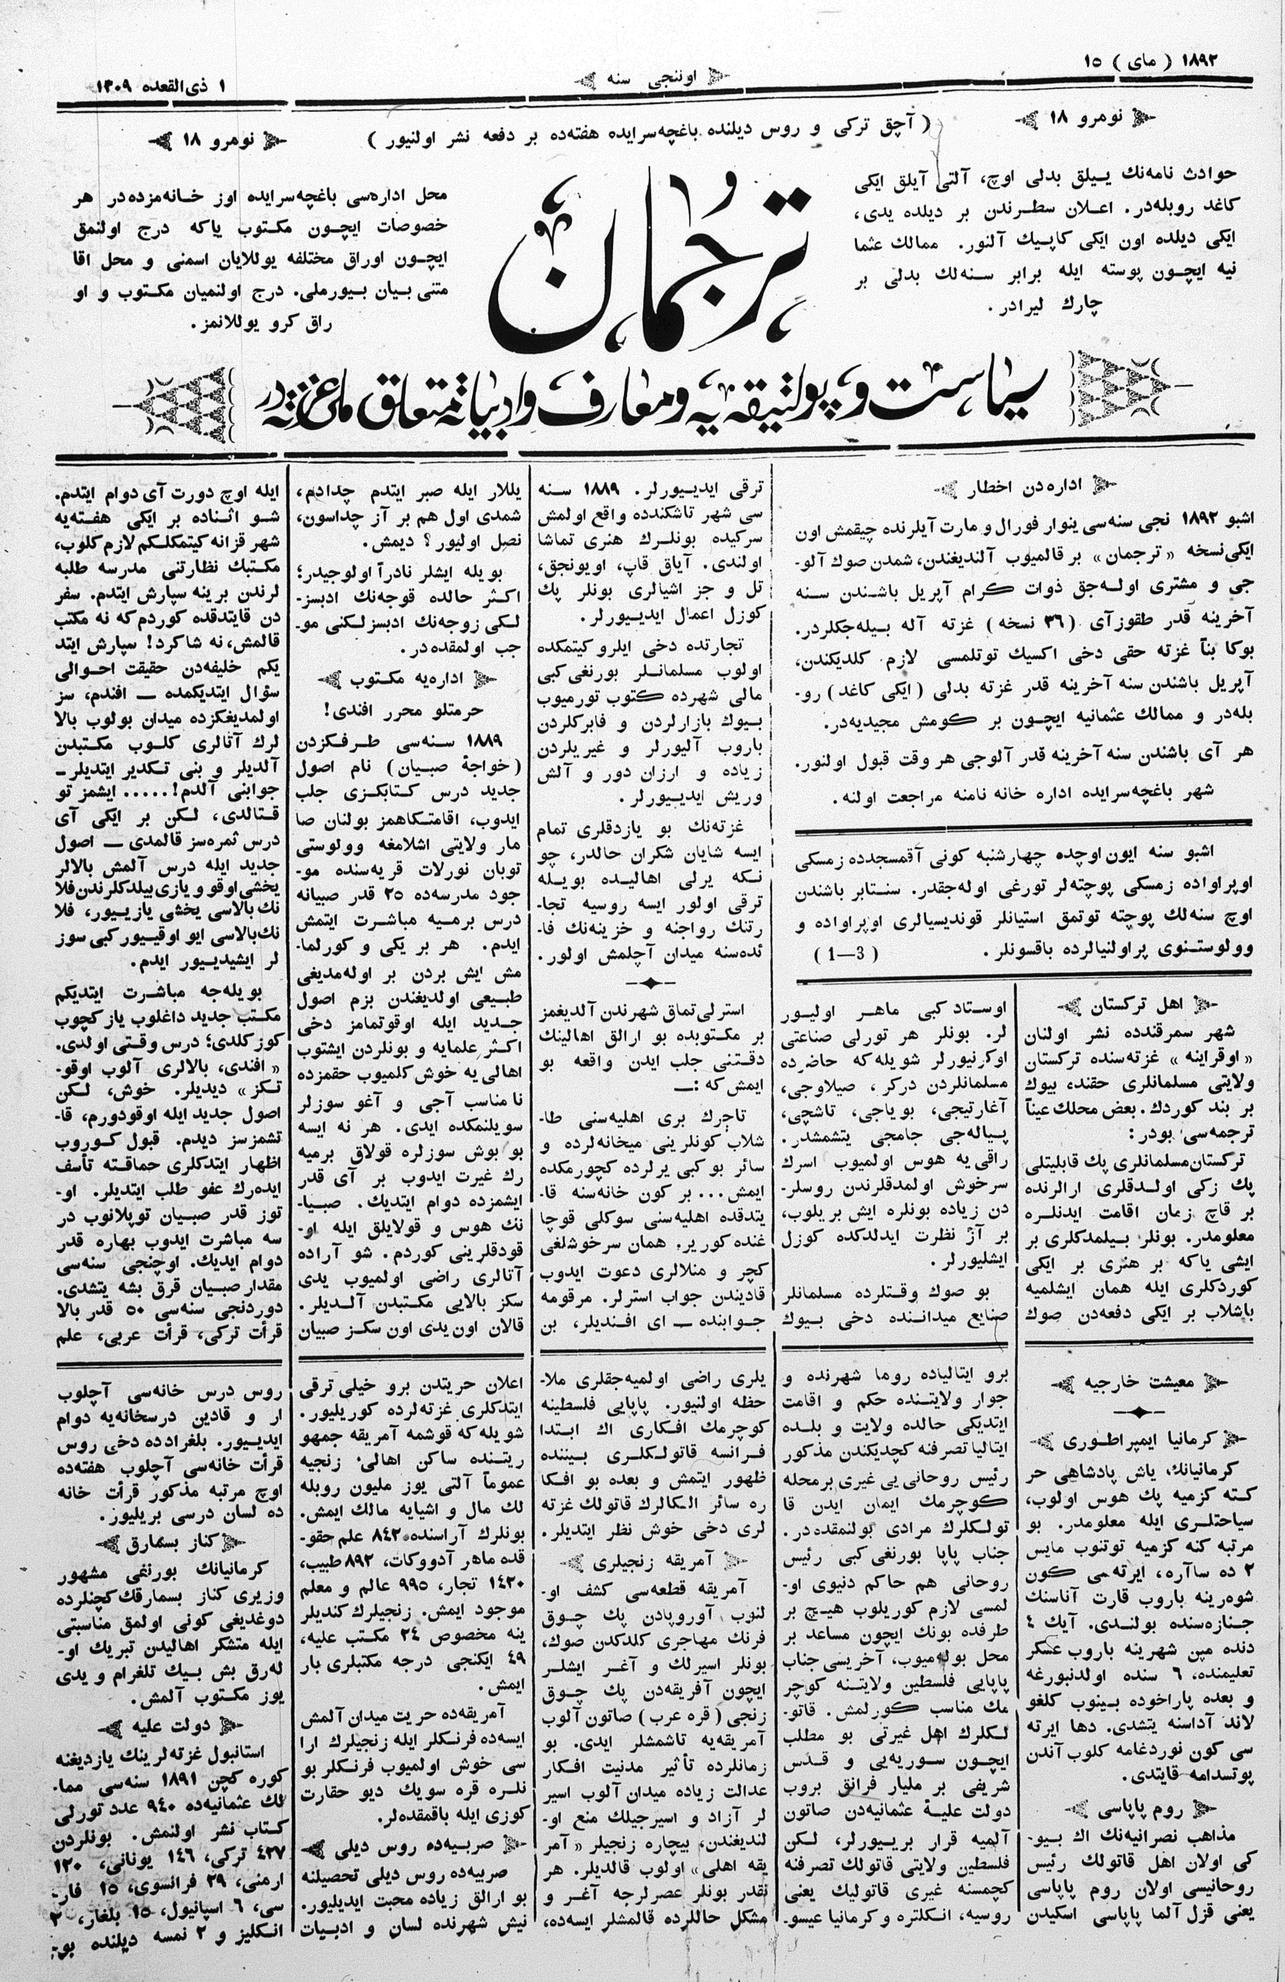 ١٨٩٢ ( مای ) ١٥
اوننجی سنه
١ ذی‌القعده ١٣٠٩
نومرو ١٨
( آچق ترکی و روس دیلنده باغچه‌سرایده هفته‌ده بر دفعه نشر اولنیور )
نومرو ١٨
حوادث نامه‌نك ییللق بدلی اوچ، آلتی آیلق ایکی
کاغد روبله‌در. اعلان سطرندن بر دیلده یدی،
ایکی دیلده اون ایکی کاپیك آلنور. ممالك عثما
نیه ایچون پوسته ایله برابر سنه‌لك بدلی بر
چارك لیرادر.
ترجمان
محل اداره‌سی باغچه‌سرایده اوز خانه‌مزده‌در هر
خصوصات ایچون مکتوب یاکه درج اولنمق
ایچون اوراق مختلفه یوللایان اسمنی و محل اقا
متنی بیان بیورملی. درج اولنمیان مکتوب و او
راق کرو یوللانمز.
سیاست و پولتیقه‌یه و معارف و ادبیاته متعلق ملی غزته‌در
اداره‌دن اخطار
اشبو ١٨٩٢ نجی سنه‌سی ینوار فورال و مارت آیلرنده چیقمش اون
ایکی نسخه «ترجمان» بر قالمیوب آلندیغندن، شمدن صوك آلو-
جی و مشتری اوله‌جق ذوات کرام آپریل باشندن سنه
آخرینه قدر طقوزآی (٣٦ نسخه) غزته آله بیله‌جکلردر.
بوکا بنآ غزته حقی دخی اکسیك توتلمسی لازم کلدیکندن،
آپریل باشندن سنه آخرینه قدر غزته بدلی (ایکی کاغد) رو-
بله‌در و ممالك عثمانیه ایچون بر کومش مجیدیه‌در.
هر آی باشندن سنه آخرینه قدر آلوجی هر وقت قبول اولنور.
شهر باغچه‌سرایده اداره خانه نامنه مراجعت اولنه.
اشبو سنه ایون اوچده چهارشنبه کونی آقمسجدده زمسکی
اوپراواده زمسکی پوچته‌لر تورغی اوله‌جقدر. سنتابر باشندن
اوچ سنه‌لك پوچته توتمق استیانلر قوندیسیالری اوپراواده و
وولوستنوی پراولنیالرده باقسونلر. (1—3)
اهل ترکستان
شهر سمرقندده نشر اولنان
«اوقراینه» غزته‌سنده ترکستان
ولایتی مسلمانلری حقند، بیوك
بر بند کوردك. بعض محلك عینآ
ترجمه‌سی بودر:
ترکستان مسلمانلری پك قابلیتلی
پك زکی اولدقلری ارالرنده
بر قاچ زمان اقامت ایدنلره
معلومدر. بونلر بیلمدکلری بر
ایشی یاکه بر هنری بر ایکی
کوردکلری ایله همان ایشلمیه
باشلاب بر ایکی دفعه‌دن صوك
اوستاد کبی ماهر اولیور
لر. بونلر هر تورلی صناعتی
اوکرنیورلر شویله که حاضرده
مسلمانلردن درکر، صیلاوجی،
آغارتیجی، بویاجی، تاشچی،
پیاله‌جی جامجی یتشمشدر.
راقی یه هوس اولمیوب اسرك
سرخوش اولمدقلرندن روسلر-
دن زیاده بونلره ایش بریلوب،
بر آز نظرت ایدلدکده کوزل
ایشلیورلر.
بو صوك وقتلرده مسلمانلر
صنایع میداننده دخی بیوك
ترقی ایدیورلر. ١٨٨٩ سنه
سی شهر تاشکندده واقع اولمش
سرکیده بونلرك هنری تماشا
اولندی. آیاق قاپ، اویونجق،
تل و جز اشیالری بونلر پك
کوزل اعمال ایدیورلر.
تجارتده دخی ایلرو کیتمکده
اولوب مسلمانلر بورنغی کبی
مالی شهرده کتوب تورمیوب
بیوك بازارلردن و فابرکلردن
باروب آلیورلر و غیریلردن
زیاده و ارزان دور و آلش
وریش ایدیورلر.
غزته‌نك بو یازدقلری تمام
ایسه شایان شکران حالدر، چو
نکه یرلی اهالیده بویله
ترقی اولور ایسه روسیه تجا-
رتنك رواجنه و خزینه‌نك فا-
ئده‌سنه میدان آچلمش اولور.
استرلی‌تماق شهرندن آلدیغمز
بر مکتوبده بو ارالق اهالینك
دقتنی جلب ایدن واقعه بو
ایمش که: —
تاجرك بری اهلیه‌سنی طا-
شلاب کونلرینی میخانه‌لرده و
سائر بو کبی یرلرده کچورمکده
ایمش... بر کون خانه‌سنه قا-
یتدقده اهلیه‌سنی سوکلی قوچا
غنده کوریر. همان سرخوشلغی
کچر و منلالری دعوت ایدوب
قادیندن جواب استرلر. مرقومه
جوابنده — ای افندیلر، بن
ییللار ایله صبر ایتدم چدادم،
شمدی اول هم بر آز چداسون،
نصل اولیور؟ دیمش.
بویله ایشلر نادرآ اولوجیدر؛
اکثر حالده قوجه‌نك ادبسز-
لکی زوجه‌نك ادبسزلکنی مو-
جب اولمقده‌در.
اداره‌یه مکتوب
حرمتلو محرر افندی!
١٨٨٩ سنه‌سی طرفکزدن
(خواجۀ صبیان) نام اصول
جدید درس کتابکزی جلب
ایدوب، اقامتکاهمز بولنان صا
مار ولایتی اشلامغه وولوستی
توبان نورلات قریه‌سنده مو-
جود مدرسه‌ده ٢٥ قدر صبیانه
درس برمیه مباشرت ایتمش
ایدم. هر بر یکی و کورلما-
مش ایش بردن بر اوله‌مدیغی
طبیعی اولدیغندن بزم اصول
جدید ایله اوقوتمامز دخی
اکثر علمایه و بونلردن ایشتوب
اهالی یه خوش کلمیوب حقمزده
نامناسب آجی و آغو سوزلر
سویلنمکده ایدی. هر نه ایسه
بو بوش سوزلره قولاق برمیه
رك غیرت ایدوب بر آی قدر
ایشمزده دوام ایتدیك. صبیا-
نك هوس و قولایلق ایله او-
قودقلرینی کوردم. شو آراده
آتالری راضی اولمیوب یدی
سکز بالایی مکتبدن آلدیلر.
قالان اون یدی اون سکز صبیان
ایله اوچ دورت آی دوام ایتدم.
شو اثناده بر ایکی هفته‌یه
شهر قزانه کیتمکلکم لازم کلوب،
مکتبك نظارتنی مدرسه طلبه
لرندن برینه سپارش ایتدم. سفر
دن قایتدقده کوردم که نه مکتب
قالمش، نه شاکرد! سپارش ایتد
یکم خلیفه‌دن حقیقت احوالی
سؤال ایتدیکمده — افندم، سز
اولمدیغکزده میدان بولوب بالا
لرك آتالری کلوب مکتبدن
آلدیلر و بنی تکدیر ایتدیلر—
جوابنی آلدم!..... ایشمز تو
قتالدی، لکن بر ایکی آی
درس ثمره‌سز قالمدی — اصول
جدید ایله درس آلمش بالالر
یخشی اوقو و یازی بیلدکلرندن فلا
نك بالاسی یخشی یازیبور، فلا
نك بالاسی ایو اوقیبور کبی سوز
لر ایشیدیبور ایدم.
بویله‌جه مباشرت ایتدیکم
مکتب جدید داغلوب یاز کچوب
کوز کلدی؛ درس وقتی اولدی.
«افندی، بالالری آلوب اوقو-
تکز» دیدیلر. خوش، لکن
اصول جدید ایله اوقودورم، قا-
تشمزسز دیدم. قبول کوروب
اظهار ایتدکلری حماقته تأسف
ایده‌رك عفو طلب ایتدیلر. او-
توز قدر صبیان توپلانوب در
سه مباشرت ایدوب بهاره قدر
دوام ایدیك. اوچنجی سنه‌سی
مقدار صبیان قرق بشه یتشدی.
دوردنجی سنه‌سی ٥٠ قدر بالا
قرأت ترکی، قرأت عربی، علم
معیشت خارجیه
کرمانیا ایمپراطوری
کرمانیانك، یاش پادشاهی حر
کته کزمیه پك هوس اولوب،
سیاحتلری ایله معلومدر. بو
مرتبه کنه کزمیه توتنوب مایس
٢ ده سآره، ایرته‌سی کون
شوه‌رینه باروب قارت آناسنك
جنازه‌سنده بولندی. آیك ٤
دنده مین شهرینه باروب عسکر
تعلیمنده، ٦ سنده اولدنبورغه
و بعده پاراخوده بینوب کلغو
لاند آداسنه یتشدی. دها ایرته
سی کون نوردغامه کلوب آندن
پوتسدامه قایتدی.
روم پاپاسی
مذاهب نصرانیه‌نك اك بیو-
کی اولان اهل قاتولك رئیس
روحانیسی اولان روم پاپاسی
یعنی قزل آلما پاپاسی اسکیدن
برو ایتالیاده روما شهرنده و
جوار ولایتنده حکم و اقامت
ایتدیکی حالده ولایت و بلده
ایتالیا تصرفنه کچدیکندن مذکور
رئیس روحانی یی غیری بر محله
کوچرمك ایمان ایدن قا
تولکلرك مرادی بولنمقده‌در.
جناب پاپا بورنغی کبی رئیس
روحانی هم حاکم دنیوی او-
لمسی لازم کوریلوب هیچ بر
طرفده بونك ایچون مساعد بر
محل بوله‌میوب، آخریسی جناب
پاپایی فلسطین ولایتنه کوچر
مك مناسب کورلمش. قاتو-
لکلرك اهل غیرتی بو مطلب
ایچون سوریه‌یی و قدس
شریفی بر ملیار فرانق بروب
دولت علیۀ عثمانیه‌دن صاتون
آلمیه قرار بریبورلر، لکن
فلسطین ولایتی قاتولك تصرفنه
کچمسنه غیری قاتولیك یعنی
روسیه، انکلتره و کرمانیا عیسو-
یلری راضی اولمیه‌جقلری ملا-
حظه اولنیور. پاپایی فلسطینه
کوچرمك افکاری اك ابتدا
فرانسه قاتولکلری بیننده
ظهور ایتمش و بعده بو افکا
ره سائر الکالرك قاتولك غزته
لری دخی خوش نظر ایتدیلر.
آمریقه زنجیلری
آمریقه قطعه‌سی کشف او-
لنوب آوروپادن پك چوق
فرنك مهاجری کلدکدن صوك،
بونلر اسیرلك و آغر ایشلر
ایچون آفریقه‌دن پك چوق
زنجی (قره عرب) صاتون آلوب
آمریقه‌یه تاشمشلر ایدی. بو
زمانلرده تأثیر مدنیت افکار
عدالت زیاده میدان آلوب اسیر
لر آزاد و اسیرجیلك منع او-
لندیغندن، بیچاره زنجیلر «آمر
یقه اهلی» اولوب قالدیلر. هر
نقدر بونلر عصرلرجه آغر و
مشکل حاللرده قالمشلر ایسه‌ده،
اعلان حریتدن برو خیلی ترقی
ایتدکلری غزته‌لرده کوریلیور.
شویله که قوشمه آمریقه جمهو
ریتنده ساکن اهالی زنجیه
عمومآ آلتی یوز ملیون روبله
لك مال و اشیایه مالك ایمش.
بونلرك آراسنده ٨٤٢ علم حقو-
قده ماهر آدووکات، ٨٩٢ طبیب،
١٤٢٠ تجار، ٩٩٥ عالم و معلم
موجود ایمش. زنجیلرك کندیلر
ینه مخصوص ٢٤ مکتب علیه،
٤٩ ایکنجی درجه مکتبلری بار
ایمش.
آمریقه‌ده حریت میدان آلمش
ایسه‌ده فرنکلر ایله زنجیلرك ارا
سی خوش اولمیوب فرنکلر بو
نلره قره سویك دیو حقارت
کوزی ایله باقمقده‌لر.
صربیه‌ده روس دیلی
صربیه‌ده روس دیلی تحصیلنه
بو ارالق زیاده محبت ایدیلیور.
نیش شهرنده لسان و ادبیات
روس درس خانه‌سی آچلوب
ار و قادین درسخانه‌یه دوام
ایدیبور. بلغرادده دخی روس
قرأت خانه‌سی آچلوب هفته‌ده
اوچ مرتبه مذکور قرأت خانه
ده لسان درسی بریلیور.
کناز بسمارق
کرمانیانك بورنغی مشهور
وزیری کناز بسمارقك کچنلرده
دوغدیغی کونی اولمق مناسبتی
ایله متشکر اهالیدن تبریك او-
له‌رق بش بیك تلغرام و یدی
یوز مکتوب آلمش.
دولت علیه
استانبول غزته‌لرینك یازدیغنه
کوره کچن ١٨٩١ سنه‌سی مما-
لك عثمانیه‌ده ٩٤٠ عدد تورلی
کتاب نشر اولنمش. بونلردن
٤٢٧ ترکی، ١٤٦ یونانی، ١٣٠
ارمنی، ٢٩ فرانسوی، ١٥ فار-
سی، ٦ اسپانیول، ١٥ بلغار، ٢
انکلیز و ٢ نمسه دیلنده بو-